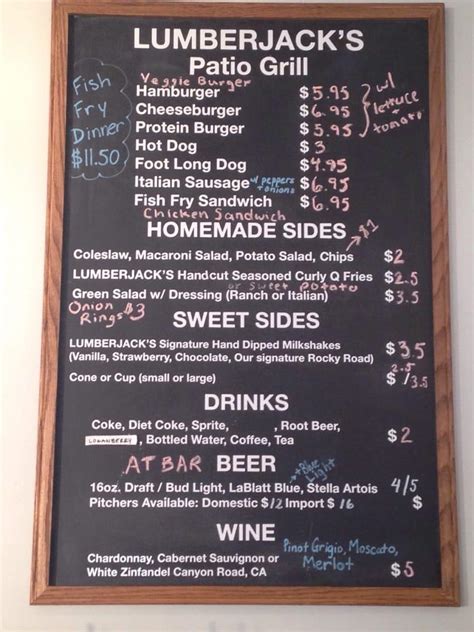 LUMBERJACK'S
Patio Grill
Fish
Fry
Dinner
$11.50
Veggie Burger
Hamburger $5.95
Cheeseburger $6.95
Protein Burger $5.95
w/
lettuce +
tomato
Hot Dog $3
Foot Long Dog $4.95
Italian Sausage w/ peppers + onions $6.95
Fish Fry Sandwich $6.95
Chicken Sandwich
HOMEMADE SIDES
$1
Coleslaw, Macaroni Salad, Potato Salad, Chips $2
LUMBERJACK'S Handcut Seasoned Curly Q Fries $2.5
or sweet potato
Green Salad w/ Dressing (Ranch or Italian) $3.5
Onion
Rings $3
SWEET SIDES
LUMBERJACK'S Signature Hand Dipped Milkshakes
(Vanilla, Strawberry, Chocolate, Our signature Rocky Road) $3.5
Cone or Cup (small or large) $2.5/3.5
DRINKS
Coke, Diet Coke, Sprite, , Root Beer,
LOGANBERRY, Bottled Water, Coffee, Tea $2
AT BAR BEER
+ Blue Light
16oz. Draft / Bud Light, LaBlatt Blue, Stella Artois 4/5
Pitchers Available: Domestic $12 Import $16 $
WINE
Pinot Grigio, Moscato,
Merlot
Chardonnay, Cabernet Sauvignon or
White Zinfandel Canyon Road, CA $5